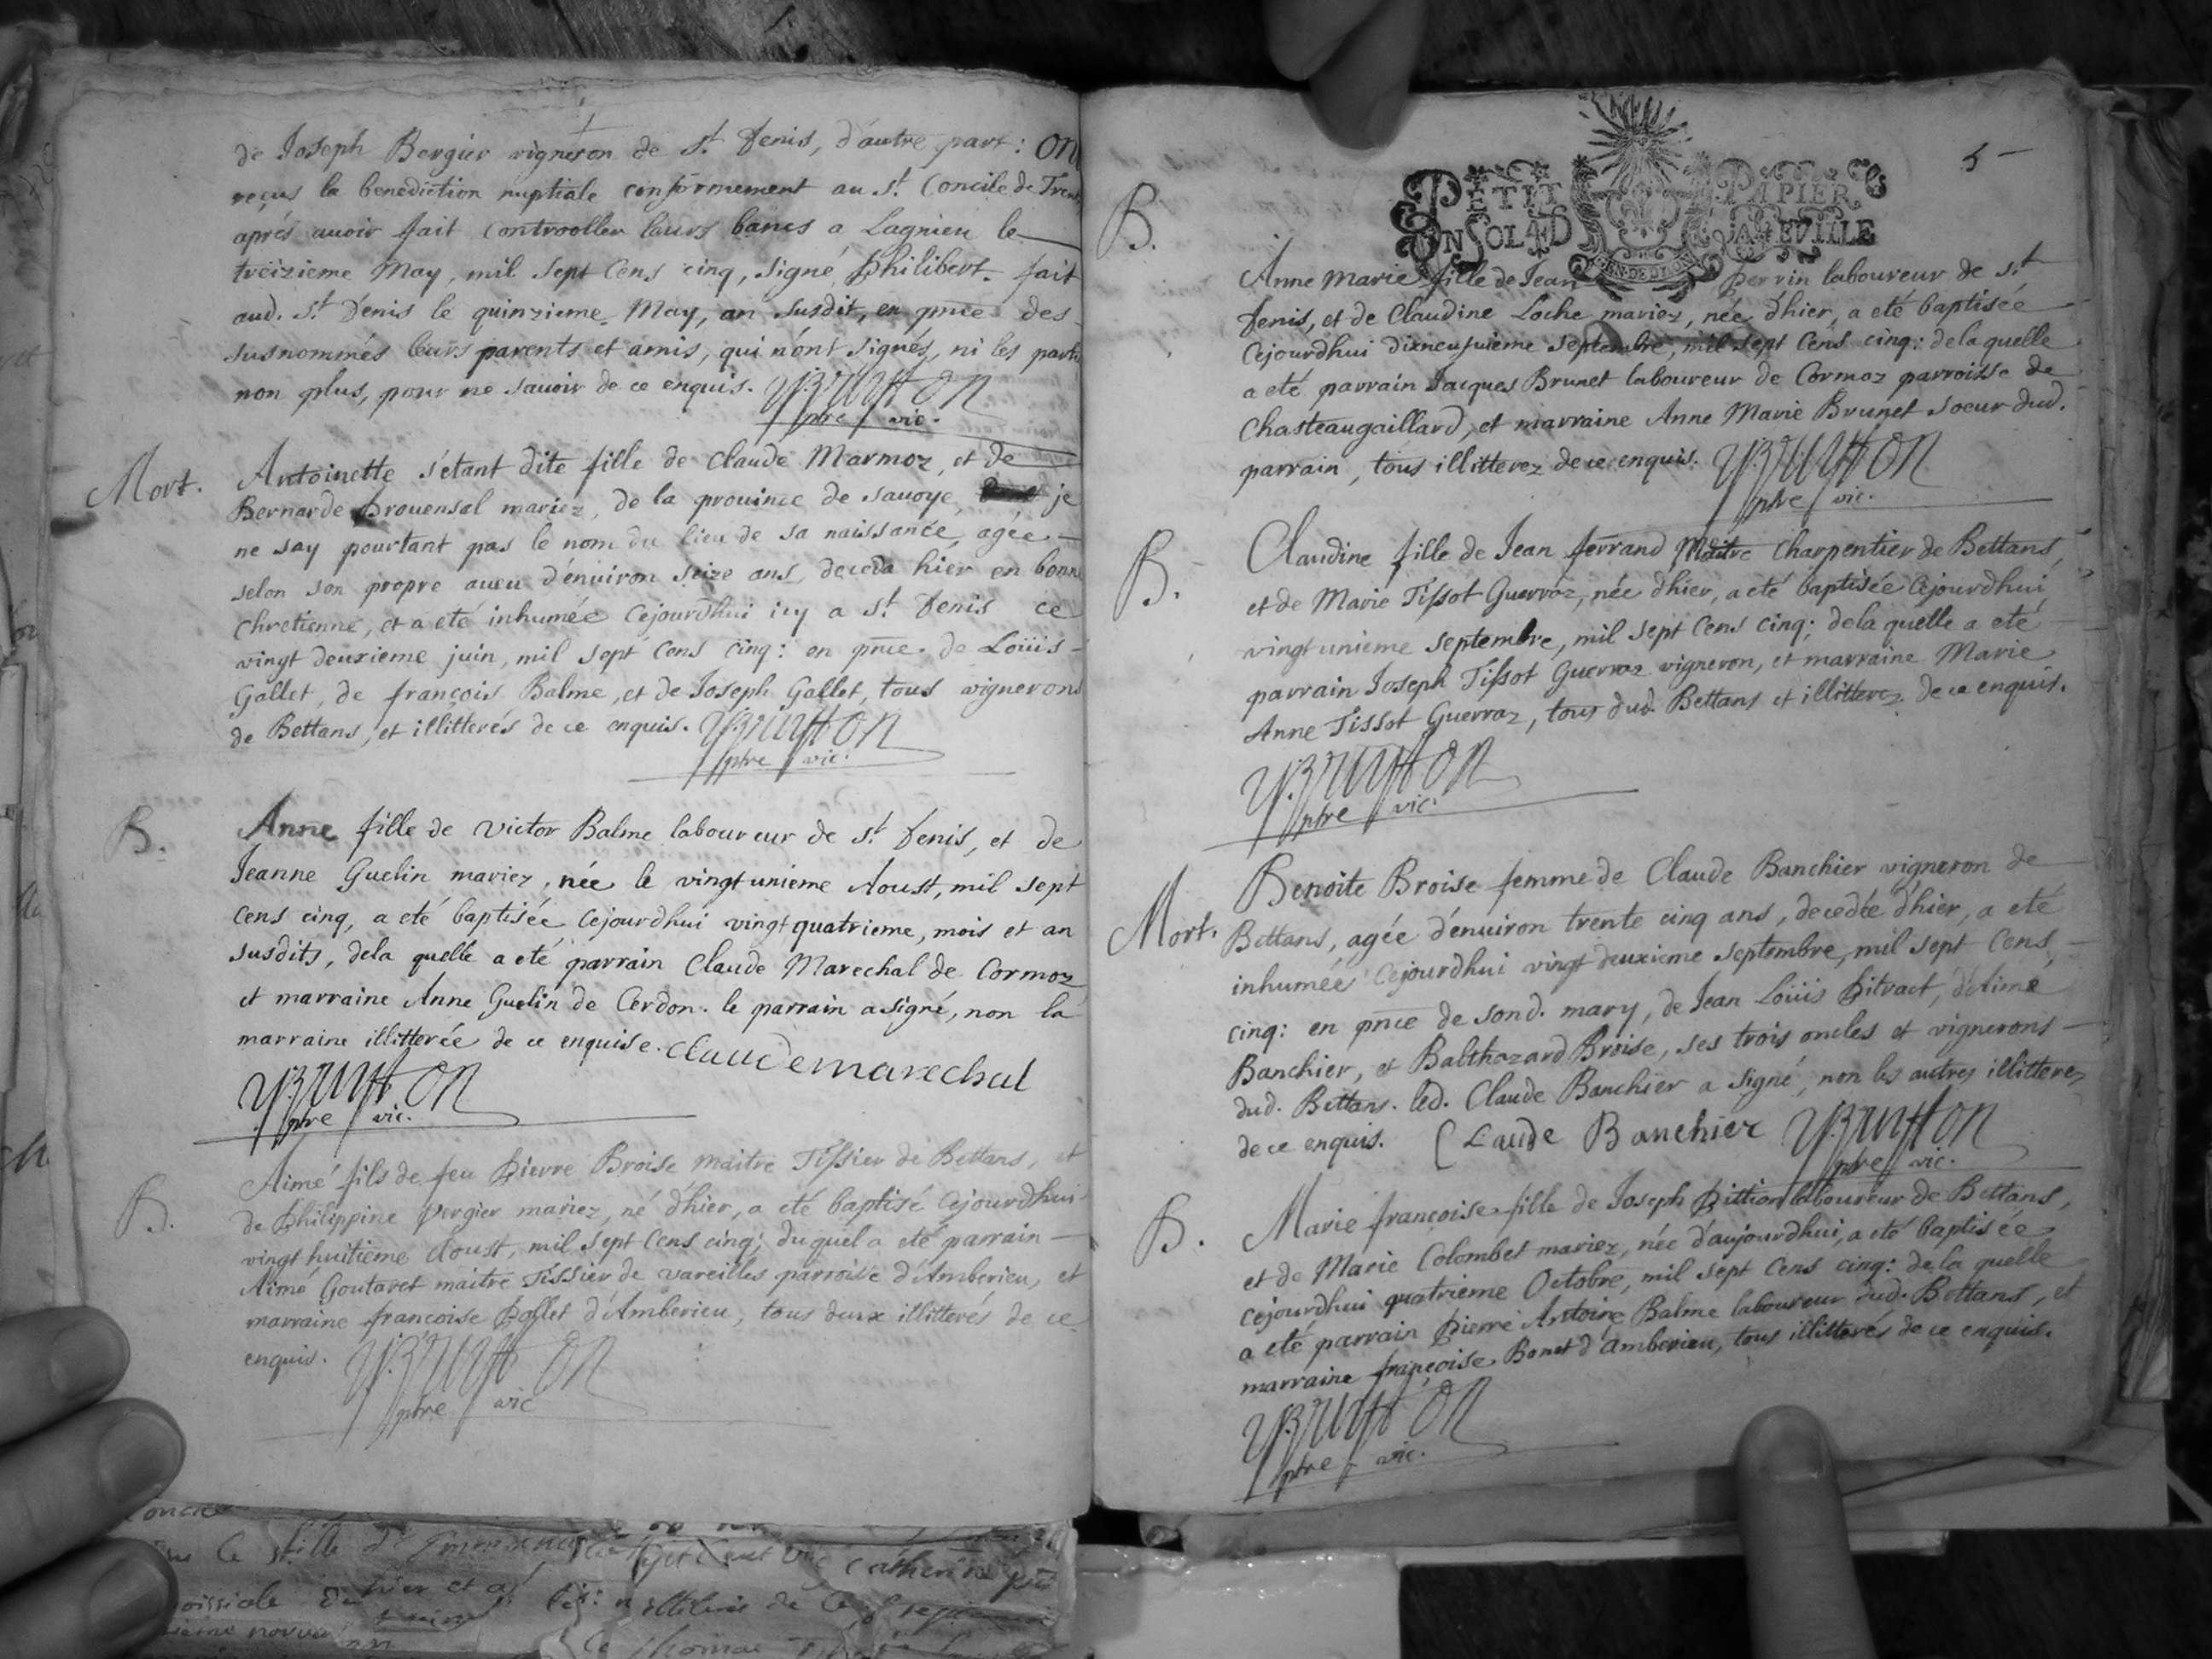 de Joseph Bergier vigneron de st. Denis, d'autre part: ont
reçus la benediction nuptiale conformement au st. Concile de Trente
aprés auoir fait controoller leurs bancs a Lagnieu le
treizieme May, mil sept cens cinq, signé Philibert. fait
aud. st. Denis le quinzieme May, an susdit, en pnce des
susnommés leurs parents et amis, qui n'ont signés, ni les parti
non plus, pour ne sauoir de ce enquis.
ptre vic.
Mort.
Antoinette s'etant dite fille de Claude Marmoz, et de
Bernarde Prouensal mariez, de la prouince de sauoye, je
ne say pourtant pas le nom du lieu de sa naissance, agée
selon son propre aueu d'enuiron seize ans, deceda hier en bonne
chretienne, et a eté inhumée cejourdhui icy a st. Denis ce
vingt deuxieme juin, mil sept cens cinq: en pnce. de Loüis
Gallet, de françois Balme, et de Joseph Gallet, tous vignerons
de Bettans, et illitterés de ce enquis.
ptre vic.
B.
Anne fille de victor Balme laboureur de st. Denis, et de
Jeanne Guelin mariez, née le vingt unieme Aoust, mil sept
cens cinq, a eté baptisée cejourdhui vingt quatrieme, mois et an
susdits, dela quelle a eté parrain Claude Marechal de Cormoz
et marraine Anne Guelin de Cerdon. le parrain a signé, non la
marraine illitterée de ce enquise. claude marechal
ptre vic.
B.
Aimé fils de feu Pierre Broise maitre Tissier de Bettans, et
de Philippine vergier mariez, né d'hier, a eté baptisé cejourdhui
vingt huitieme Aoust, mil sept cens cinq; duquel a eté parrain
Aimé Goutaret maitre Tissier de vareilles parroisse d'Amberieu, et
marraine francoise Pollet d'Amberieu, tous deux illitterés de ce
enquis.
ptre vic
5
PETIT PAPIER
UN SOL 4 D LA FEUILLE
GEN. DE DIJON
B.
Anne Marie fille de Jean Perrin laboureur de st.
Denis, et de Claudine Loche mariez, née d'hier, a eté baptisée
cejourdhui dixneufuieme septembre, mil sept cens cinq: dela quelle
a eté parrain Jacques Brunet laboureur de Cormoz parroisse de
Chasteaugaillard, et marraine Anne Marie Brunet soeur dud.
parrain, tous illitterez de ce enquis.
ptre vic.
B.
Claudine fille de Jean ferrand Maitre Charpentier de Bettans,
et de Marie Tissot Guerraz, née d'hier, a eté baptisée cejourdhui
vingt unieme septembre, mil sept cens cinq; dela quelle a eté
parrain Joseph Tissot Guerraz vigneron, et marraine Marie
Anne Tissot Guerraz, tous dud. Bettans et illitterez de ce enquis.
ptre vic.
Mort.
Benoite Broise femme de Claude Banchier vigneron de
Bettans, agée d'enuiron trente cinq ans, decedée d'hier, a eté
inhumée cejourdhui vingt deuxieme septembre, mil sept cens
cinq: en pnce de sond. mary, de Jean Loüis Pitract, d'Aimé
Banchier, et Balthazard Broise, ses trois oncles et vignerons
dud. Bettans. led. Claude Banchier a signé, non les autres illitterez
de ce enquis. Claude Banchier
ptre vic.
B.
Marie francoise fille de Joseph Pittion laboureur de Bettans,
et de Marie Colombet mariez, née d'aujourdhui, a eté baptisée
cejourdhui quatrieme Octobre, mil sept cens cinq: dela quelle
a eté parrain Pierre Antoine Balme laboureur dud. Bettans, et
marraine françoise Bonet d'amberieu, tous illitterés de ce enquis.
ptre vic.